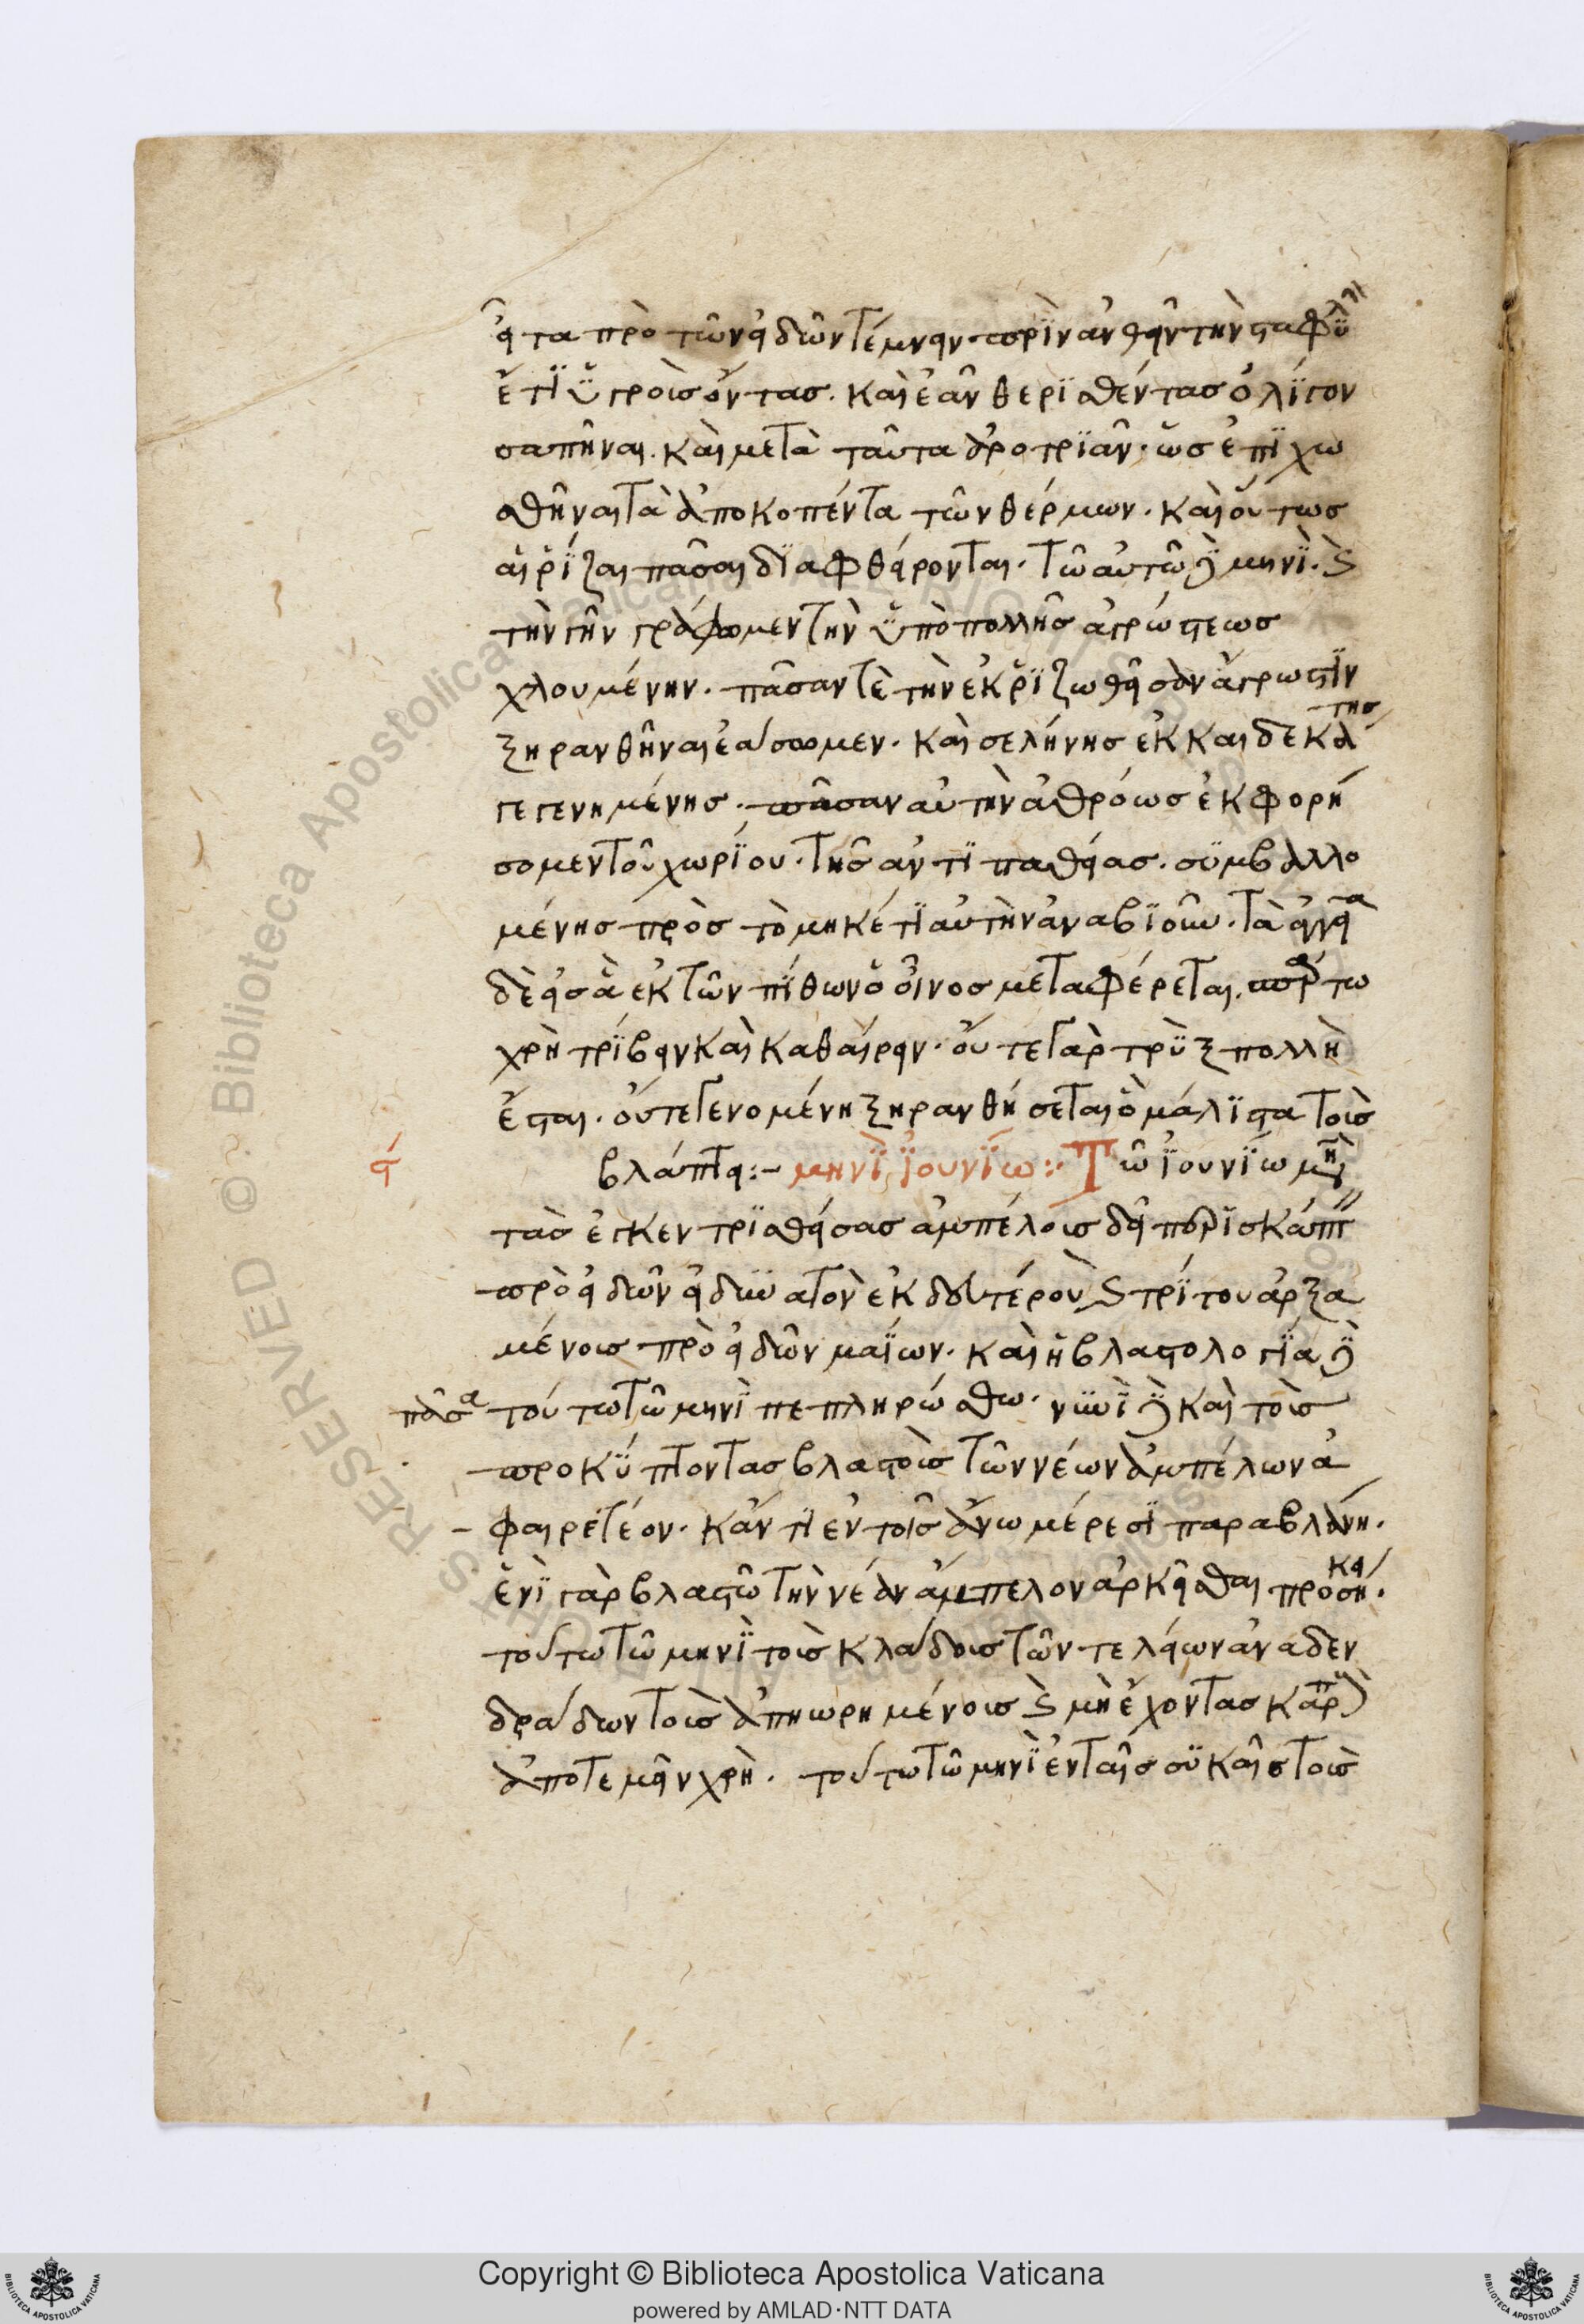 εἶτα πρὸ τῶν εἰδῶν τέμνειν. πρὶν ἀνθεῖν τὴν σταφυλὴν
ἔτι ὑγροὺς ὄντας. καὶ ἐὰν θερισθέντας ὀλίγον
σαπῆναι. καὶ μετὰ ταῦτα ἀροτριᾶν. ὡς ἐπιχω
σθῆναι τὰ ἀποκοπέντα τῶν θέρμων. καὶ οὕτως
αἱ ῥίζαι πᾶσαι διαφθείρονται. τῶ αὐτῶ δὲ μηνὶ. καὶ
τὴν γῆν γράψομεν τὴν ὑπὸ πολλῆς ἀγρώστεως
χλουμένην. πᾶσαν τὲ τὴν ἐκριζωθεῖσαν ἄγρωστιν
ξηρανθῆναι ἐάσομεν. καὶ σελήνης ἐκκαιδεκάτης
γεγενημένης. πᾶσαν αὐτὴν ἀθρόως ἐκφορή
σομεν τοῦ χωρίου. τῆς ἀντιπαθείας. συμβαλλο
μένης πρὸς τὸ μηκέτι αὐτὴν ἀναβιοῦν. τὰ ἀγγεῖα
δὲ εἰς ἃ ἐκ τῶν πίθων ὁ οἶνος μεταφέρεται.
χρὴ τρίβειν καὶ καθαίρειν. οὔτε γὰρ τρὺξ πολλὴ
ἔσται. οὔτε γενομένη ξηρανθήσεται ὃ μάλιστα τοὺς
βλάπτει:– μηνὶ ἰουνίω:· Τῶ ἰουνίω μηνὶ
τὰς ἐγκεντρισθείσας ἀμπέλους δεῖ περισκάπτειν
πρὸ εἰδῶν εἰδυιῶν ἐκ δευτέρου καὶ τρίτου ἀρξα
μένους πρὸ εἰδῶν μαΐων. καὶ ἡ βλαστολογία δὲ
πᾶσα τούτω τῶ μηνὶ πεπληρώσθω. νυνὶ δὲ καὶ τοὺς
προκύπτοντας βλαστοὺς τῶν νέων ἀμπέλων ἀ
φαιρετέον. κἄν τι ἐν τοῖς ἄνω μέρεσι παραβλάνη.
ἑνὶ γὰρ βλαστῶ τὴν νέαν ἄμπελον ἀρκεῖσθαι προσήκει.
τούτω τῶ μηνὶ τοὺς κλάδους τῶν τελείων ἀναδεν
δράδων τοὺς ἀπηωρημένους καὶ μὴ ἔχοντας καρπὸν
ἀποτεμεῖν χρὴ. τούτω τῶ μηνὶ ἐν ταῖς συκαῖς τοὺς
Copyright © Biblioteca Apostolica Vaticana
powered by AMLAD·NTT DATA